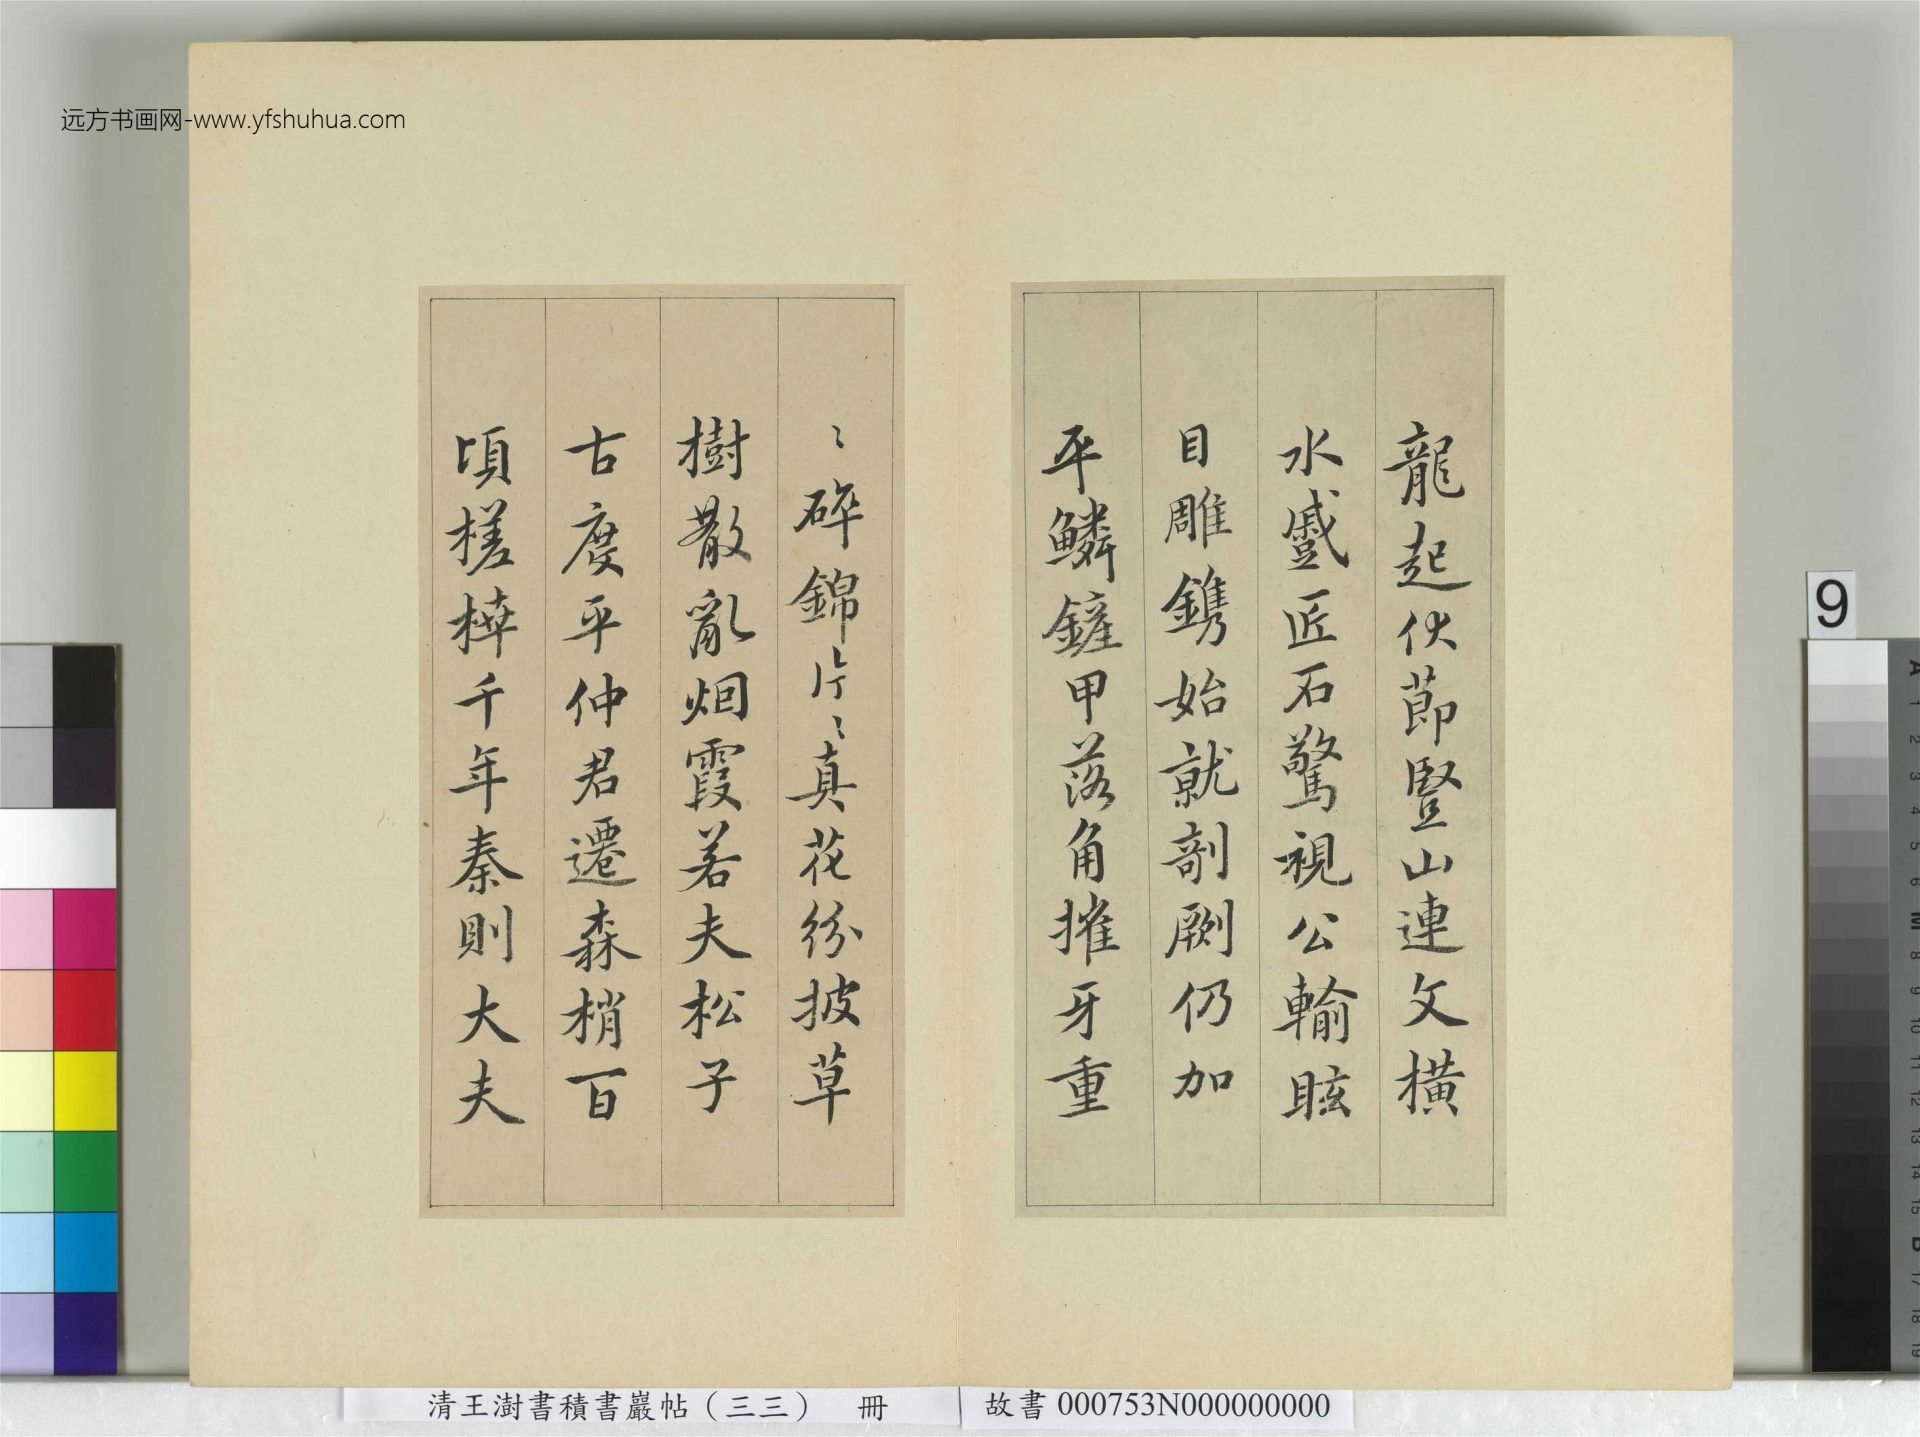 远方书画网-www.yfshuhua.com
龍起伏節豎山連文橫
水蹙匠石驚視公輸眩
目雕鐫始就剞劂仍加
平鱗鏟甲落角摧牙重
〻碎錦片〻真花紛披草
樹散亂烟霞若夫松子
古度平仲君遷森梢百
頃槎枿千年秦則大夫
9
清王澍書積書巖帖（三三） 冊
故書 000753N000000000
A 1 2 3 4 5 6 M 8 9 10 11 12 13 14 15 B 17 18 19